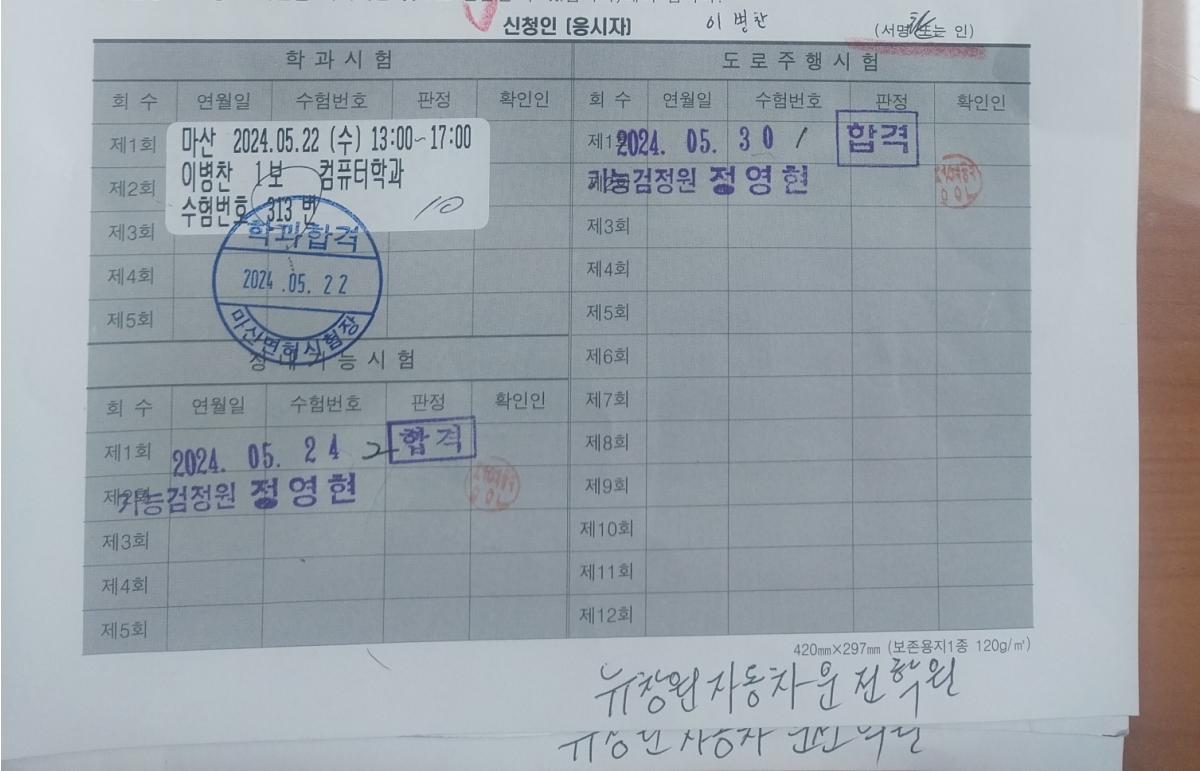 신청인 (응시자) 이병찬 (서명 또는 인)
학 과 시 험
회 수 연월일 수험번호 판정 확인인
제1회
제2회
제3회
제4회
제5회
마산 2024.05.22 (수) 13:00~17:00
이병찬 1보 컴퓨터학과
수험번호 313 번
10
학과합격
2024.05.22
마산면허시험장
장 내 기 능 시 험
회 수 연월일 수험번호 판정 확인인
제1회 2024. 05. 24 2 합격
제2회 기능검정원 정영현
제3회
제4회
제5회
도 로 주 행 시 험
회 수 연월일 수험번호 판정 확인인
제1회 2024. 05. 30 1 합격
제2회 기능검정원 정영현
제3회
제4회
제5회
제6회
제7회
제8회
제9회
제10회
제11회
제12회
420㎜×297㎜ (보존용지1종 120g/㎡)
뉴창원자동차운전학원